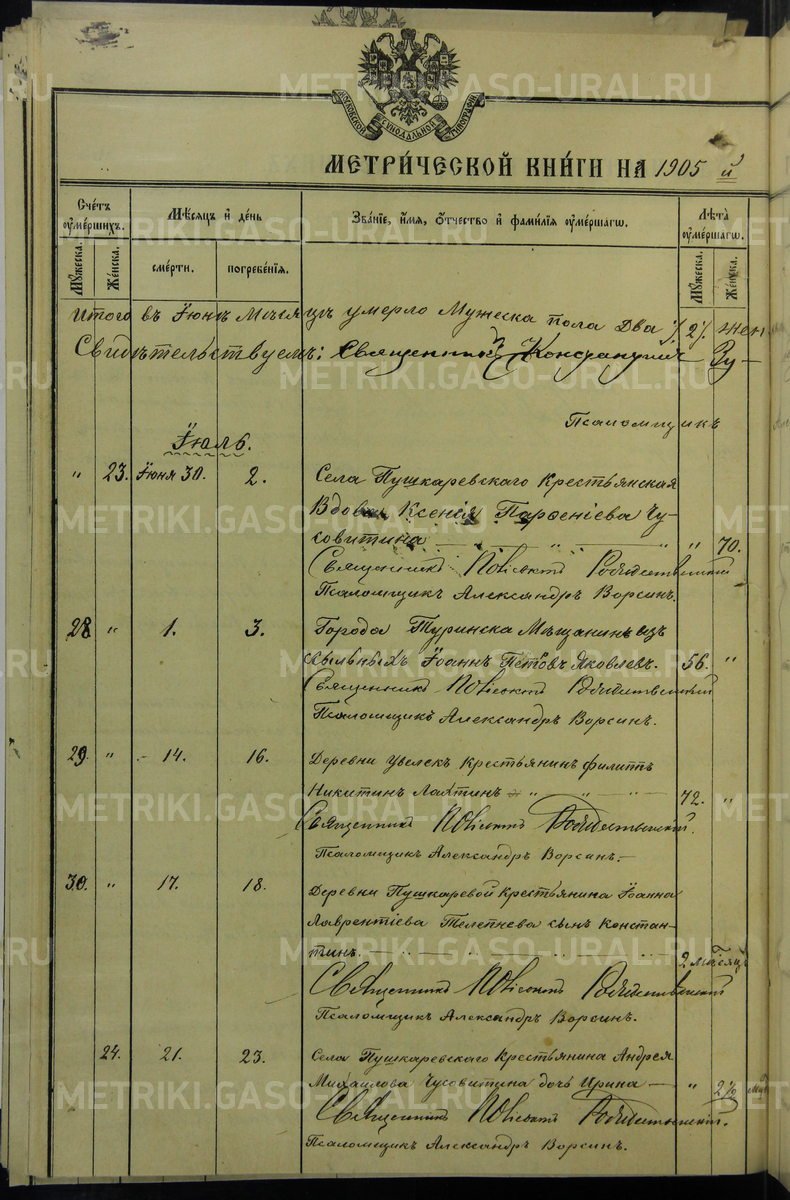 МОСКОВСКОЙ СУНОДАЛЬНОЙ ТИПОГРАФІИ
МЕТРИ́ЧЕСКОЙ КНИ́ГИ НА 1905 й
Сче́тъ ᲂу҆ме́ршихъ.
Мѣ́сяцъ и҆ де́нь
Зва́нїе, и҆́мя, ѻ҆́тчество и҆ фами́лїя ᲂу҆ме́ршагѡ.
Лѣ́та ᲂу҆ме́ршагѡ.
Мꙋ́жеска.
Же́нска.
сме́рти.
погребе́нїя.
Мꙋ́жеска.
Же́нска.
Итого въ Іюнѣ Мѣсяцѣ умерло Мужеска пола Два 2 жен
Свидѣтельствуемъ: Священникъ Константинъ Зу-
Псаломщикъ
Іюль.
" 23. Іюня 30. 2. Села Пушкаревскаго Крестьянская
Вдова Ксенія Парѳеніева Чу-
совитина " " " 70.
Священникъ Рождественскій
Псаломщикъ Александръ Ворсинъ.
28 " 1. 3. Города Туринска Мѣщанинъ изъ
ссыльныхъ Іоаннъ Петровъ Яковлевъ. 56. "
Священникъ Рождественскій
Псаломщикъ Александръ Ворсинъ.
29. " 14. 16. Деревни Увелекъ Крестьянинъ Филиппъ
Никитинъ Лахтинъ " " " 72. "
Священникъ Рождественскій.
Псаломщикъ Александръ Ворсинъ.
30. " 17. 18. Деревни Пушкаревой крестьянина Іоанна
Лаврентіева Телепнева сынъ Констан-
тинъ. 2 мѣсяц
Священникъ Рождественскій
Псаломщикъ Александръ Ворсинъ.
24. 21. 23. Села Пушкаревскаго Крестьянина Андрея
Михаилова Чусовитина дочь Ирина " 2½
Священникъ Рождественскій.
Псаломщикъ Александръ Ворсинъ.
METRIKI.GASO-URAL.RU